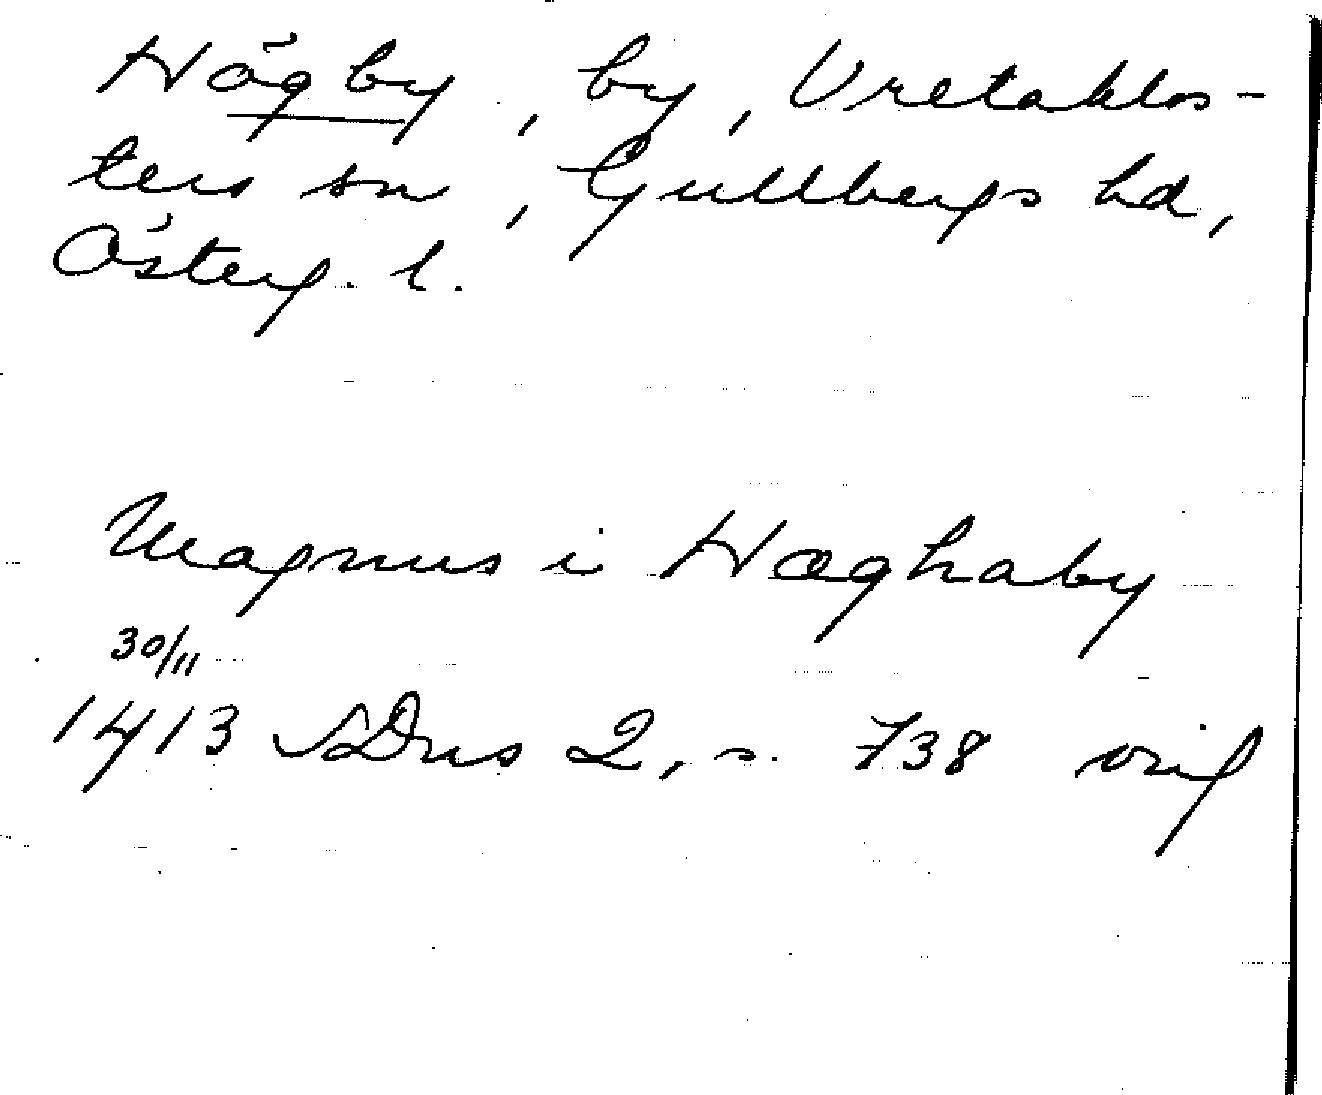 Högby, by, Vretaklos-
ters sn, Gullbergs hd,
Österg. l.
Magnus i Høghaby
30/11
1413 SDns 2, s. 738 orig